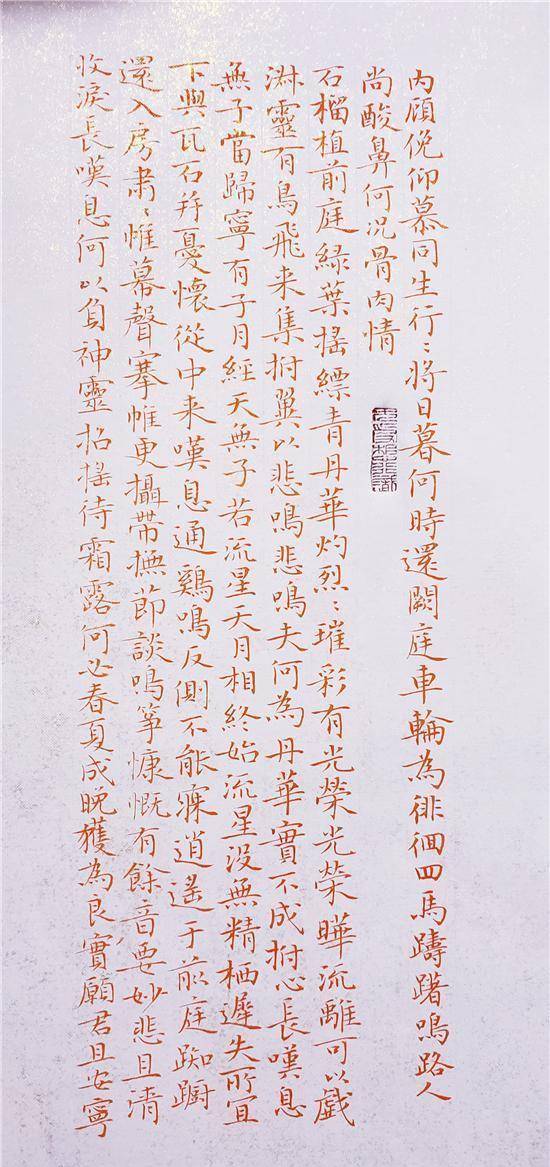 内顧俛仰慕同生行〻將日暮何時還闕庭車輪為徘徊四馬躊躇鳴路人
尚酸鼻何況骨肉情
石榴植前庭緑葉揺縹青丹華灼烈〻璀彩有光榮光榮曄流離可以戲
淋靈有鳥飛来集拊翼以悲鳴悲鳴夫何為丹華實不成拊心長嘆息
無子當歸寧有子月經天無子若流星天月相終始流星没無精栖遲失所宜
下與瓦石并憂懷從中来嘆息通鷄鳴反側不能寐逍遥于前庭踟蹰
還入房肅〻帷幕聲搴帷更攝帶撫節談鳴筝慷慨有餘音要妙悲且清
收淚長嘆息何以負神靈招摇待霜露何必春夏成晚獲為良實願君且安寧